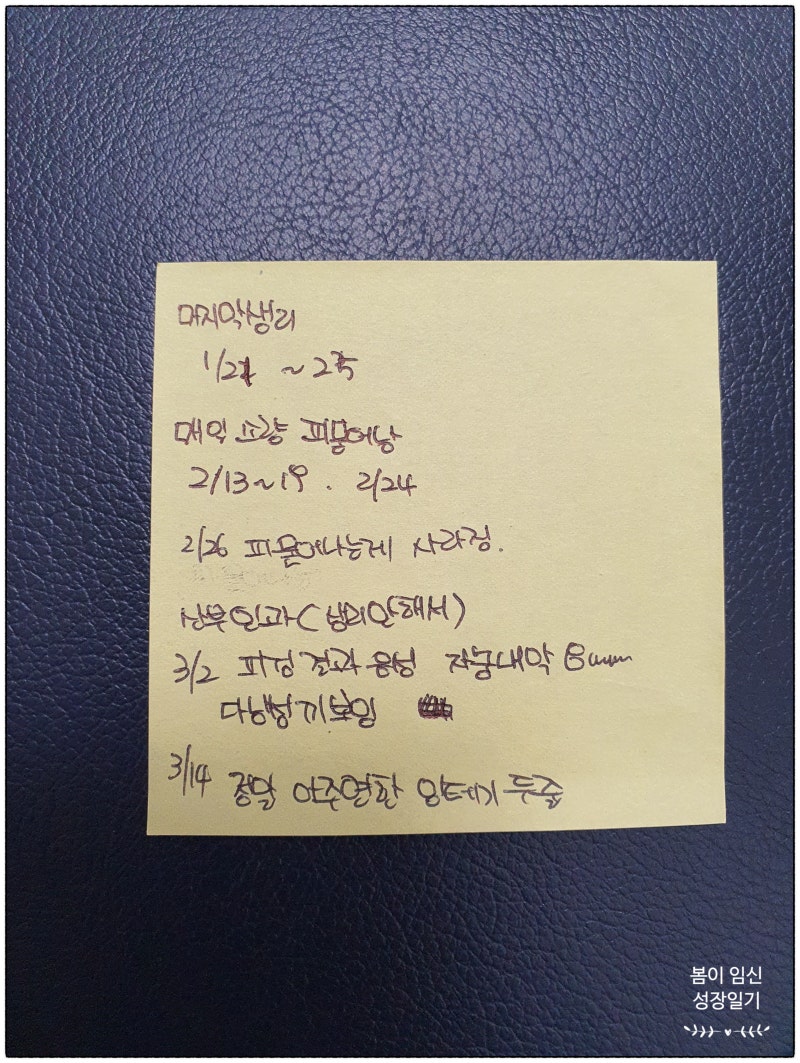 마지막생리
1/21 ~ 25
매일 소량 피묻어남
2/13~19. 2/24
2/26 피묻어나는게 사라짐.
산부인과( 생리안해서)
3/2 피검결과음성 자궁내막 8mm
다행성기보임
3/14 정말 아주연한 임테기 두줄
봄이 임신
성장일기